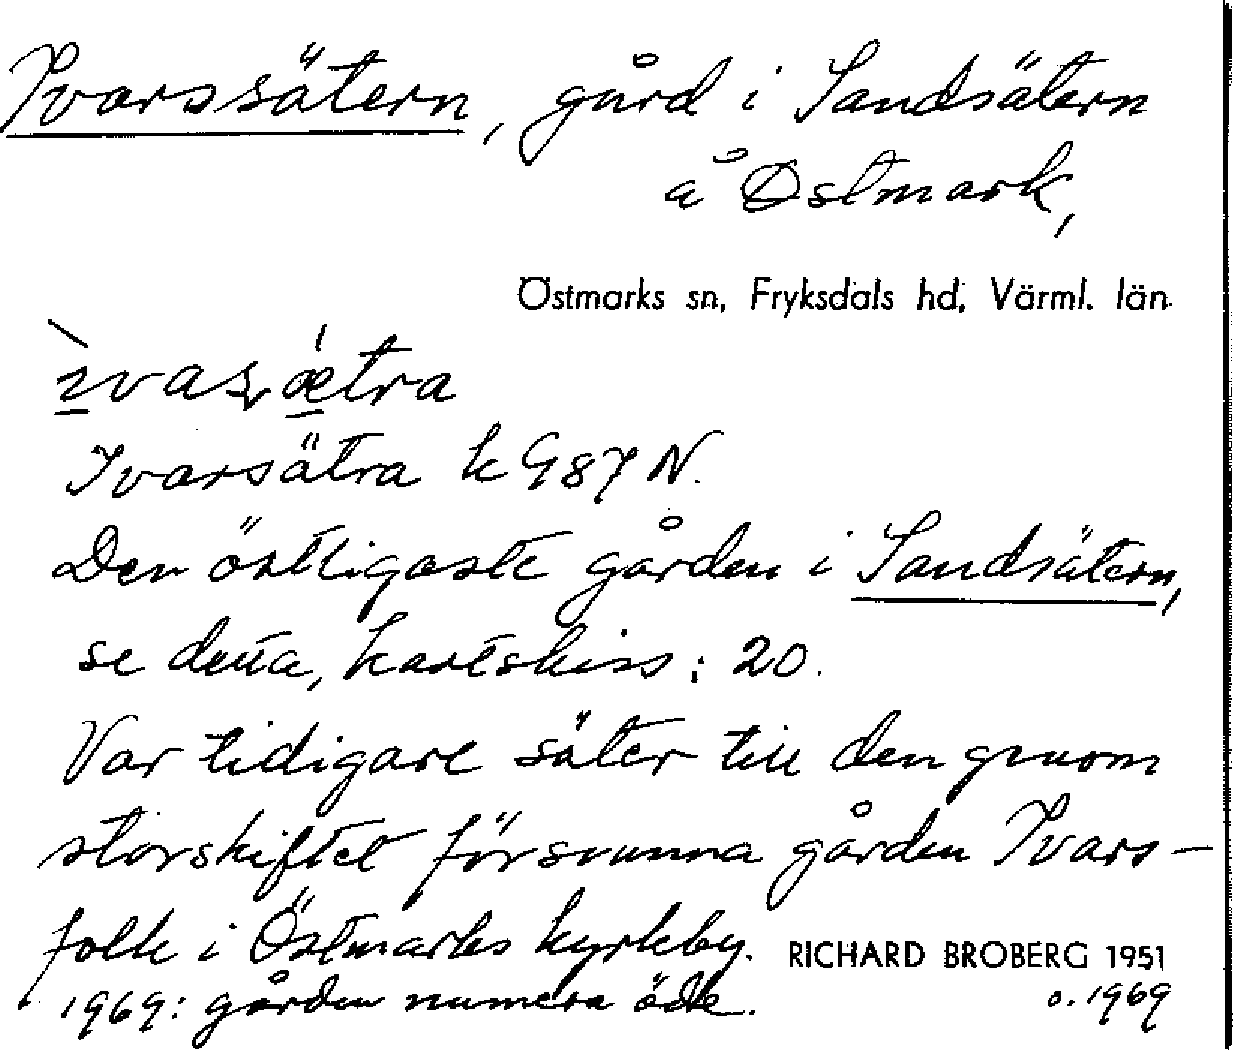 Ivarssätern, gård i Sandsätern
å Östmark,
Östmarks sn, Fryksdals hd, Värml. län
Ivarsätra k G87 N.
Den östligaste gården i Sandsätern,
se detta, kartskiss: 20.
Var tidigare säter till den genom
storskiftet försvunna gården Ivars-
folk i Östmarks kyrkby. RICHARD BROBERG 1951
1969: gården numera öde. o. 1969